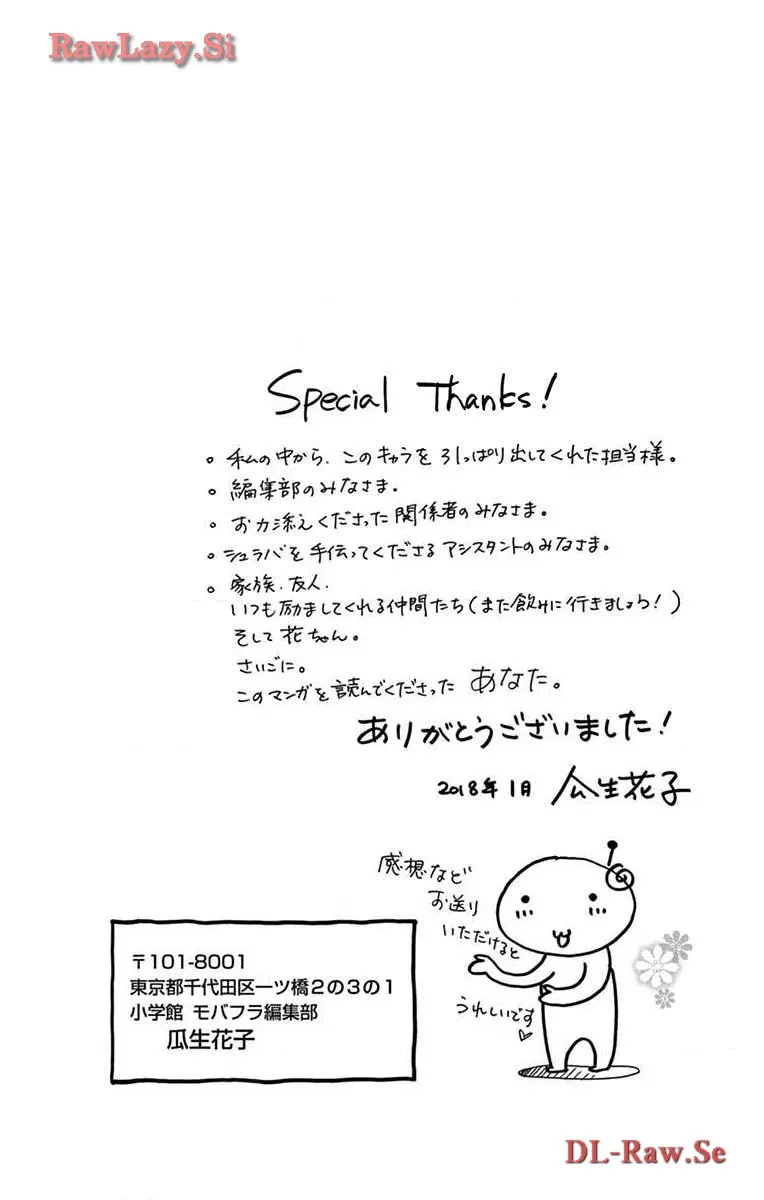 RawLazy.Si
Special Thanks!
。私の中から、このキャラを引っぱり出してくれた担当様。
。編集部のみなさま。
。お力添えくださった関係者のみなさま。
。シュラバを手伝ってくださるアシスタントのみなさま。
。家族、友人、
いつも励ましてくれる仲間たち(また飲みに行きましょう!)
そして花ちゃん。
さいごに。
このマンガを読んでくださった あなた。
ありがとうございました!
2018年1月 瓜生花子
感想など
お送り
いただけると
うれしいです♡
〒101-8001
東京都千代田区一ツ橋2の3の1
小学館 モバフラ編集部
瓜生花子
DL-Raw.Se